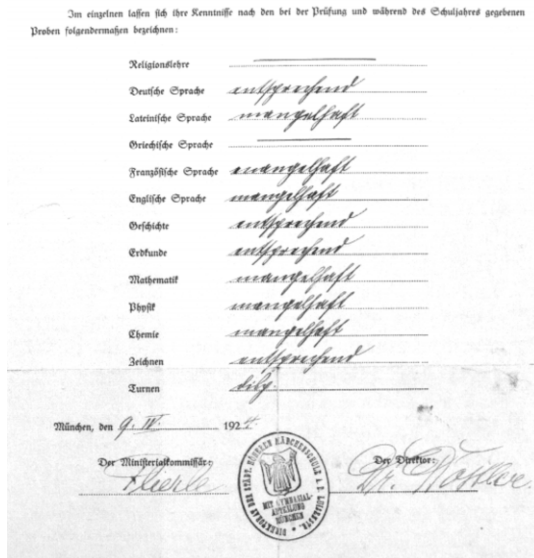 Im einzelnen lassen sich ihre Kenntnisse nach den bei der Prüfung und während des Schuljahres gegebenen
Proben folgendermaßen bezeichnen:
Religionslehre
Deutsche Sprache entsprechend
Lateinische Sprache mangelhaft
Griechische Sprache
Französische Sprache mangelhaft
Englische Sprache mangelhaft
Geschichte entsprechend
Erdkunde entsprechend
Mathematik mangelhaft
Physik mangelhaft
Chemie mangelhaft
Zeichnen entsprechend
Turnen
München, den 9. IV. 1924.
Der Ministerialkommissär: Der Direktor:
DIREKTORAT DER STÄDT. HÖHEREN MÄDCHENSCHULE A. D. LUISENSTR.
MIT GYMNASIAL-
ABTEILUNG
MÜNCHEN